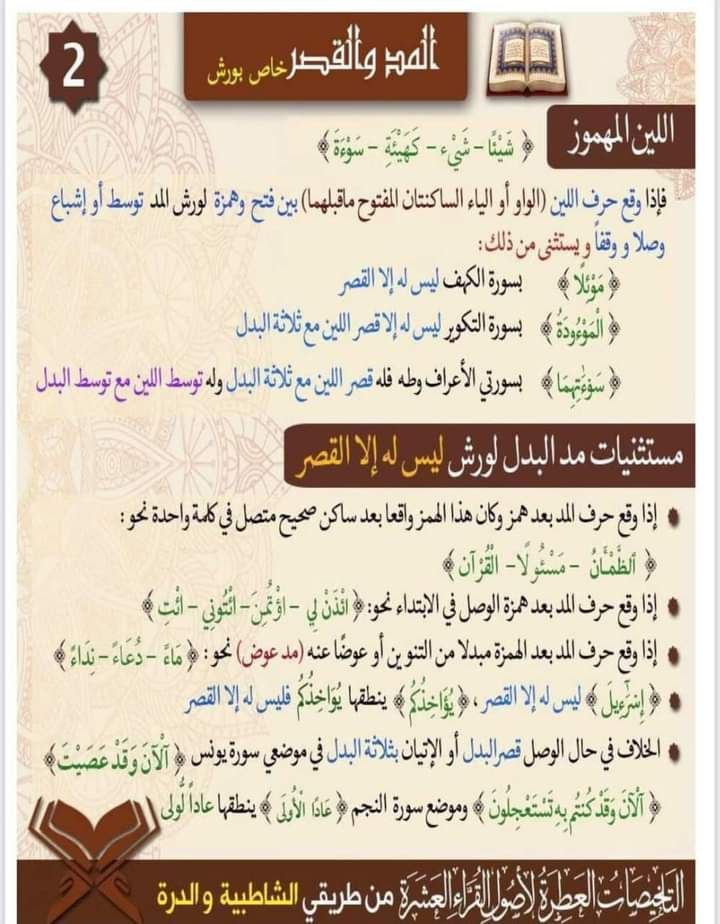 2
المد والقصر خاص بورش
اللين المهموز ﴿ شَيْئًا – شَيْء – كَهَيْئَةِ – سَوْءَةَ ﴾
فإذا وقع حرف اللين (الواو أو الياء الساكنتان المفتوح ماقبلهما) بين فتح وهمزة لورش المد توسط أو إشباع
وصلا و وقفاً و يستثنى من ذلك:
﴿ مَوْئِلًا ﴾ بسورة الكهف ليس له إلا القصر
﴿ الْمَوْءُودَةُ ﴾ بسورة التكوير ليس له إلا قصر اللين مع ثلاثة البدل
﴿ سَوْءَٰتِهِمَا ﴾ بسورتي الأعراف وطه فله قصر اللين مع ثلاثة البدل وله توسط اللين مع توسط البدل
مستثنيات مد البدل لورش ليس له إلا القصر
إذا وقع حرف المد بعد همز وكان هذا الهمز واقعا بعد ساكن صحيح متصل في كلمة واحدة نحو :
﴿ الظَّمْـَٔانُ – مَسْئُولًا – الْقُرْآن ﴾
إذا وقع حرف المد بعد همزة الوصل في الابتداء نحو: ﴿ ائْذَنْ لِي – اؤْتُمِنَ – ائْتُونِي – ائْتِ ﴾
إذا وقع حرف المد بعد الهمزة مبدلا من التنوين أو عوضًا عنه (مد عوض) نحو : ﴿ مَاءً – دُعَاءً – نِدَاءً ﴾
﴿ إِسْرَٰٓءِيلَ ﴾ ليس له إلا القصر ، ﴿ يُؤَاخِذُكُمُ ﴾ ينطقها يُوَاخِذُكُمُ فليس له إلا القصر
الخلاف في حال الوصل قصرالبدل أو الإتيان بثلاثة البدل في موضعي سورة يونس ﴿ آلْآنَ وَقَدْ عَصَيْتَ ﴾
﴿ آلْآنَ وَقَدْ كُنتُم بِهِ تَسْتَعْجِلُونَ ﴾ وموضع سورة النجم ﴿ عَادًا الْأُولَى ﴾ ينطقها عاداً لُّولى
التلخيصات العطرة لأصول القراء العشرة من طريقي الشاطبية و الدرة